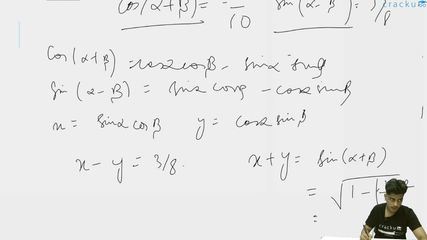 cos(α+β) = -1/10 sin(α-β) = 3/8
cracku
cos(α+β) = cosα cosβ - sinα sinβ
sin(α-β) = sinα cosβ - cosα sinβ
x = sinα cosβ y = cosα sinβ
x - y = 3/8. x+y = sin(α+β)
= √1 -
=